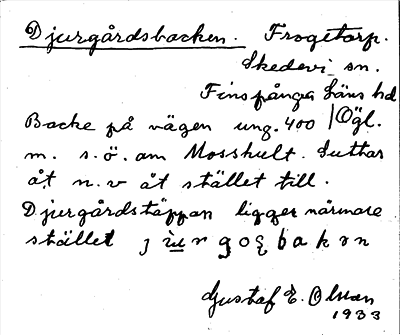 Djurgårdsbacken. Frogetorp.
Skedevi sn.
Finspånga Läns hd
Backe på vägen ung. 400 | Ögl.
m. s.ö. om Mosshult. Suttar
åt n.v åt stället till.
Djurgårdstäppan ligger närmare
stället
Gustaf E. Olsson
1933